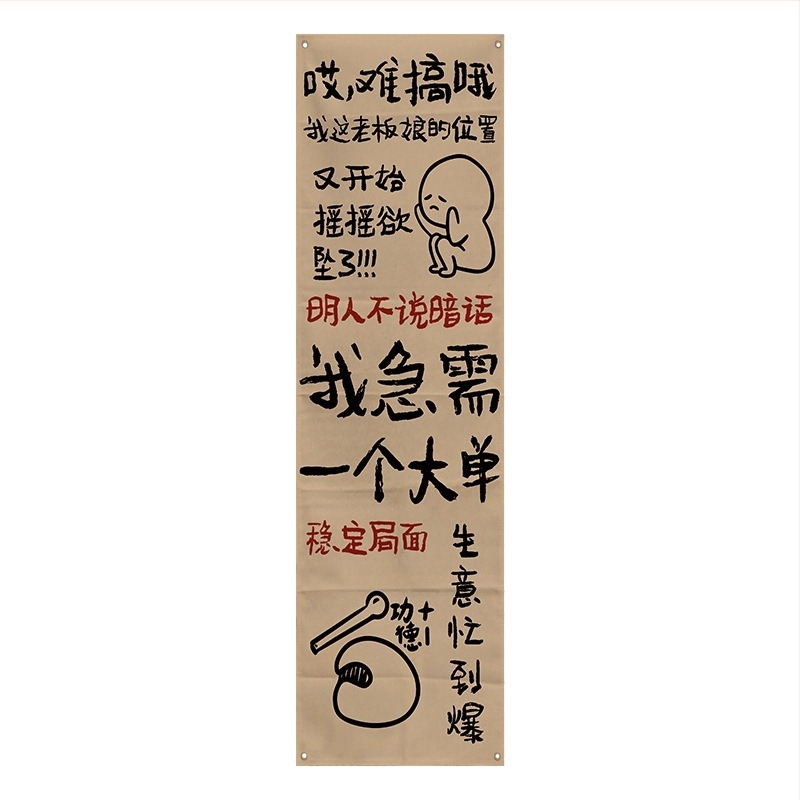 哎,难搞哦
我这老板娘的位置
又开始
摇摇欲
坠了!!!
明人不说暗话
我急需
一个大单
稳定局面
生意忙到爆
功德+1